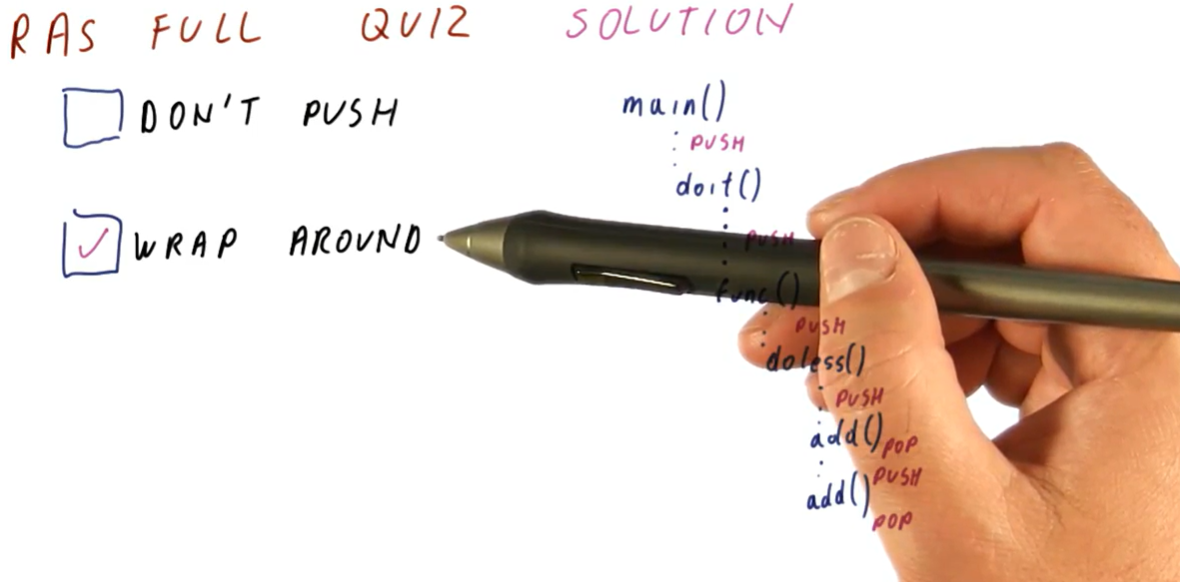 RAS FULL QUIZ SOLUTION
DON'T PUSH
WRAP AROUND
main()
PUSH
doit()
PUSH
func()
PUSH
doless()
PUSH
add() POP
PUSH
add()
POP